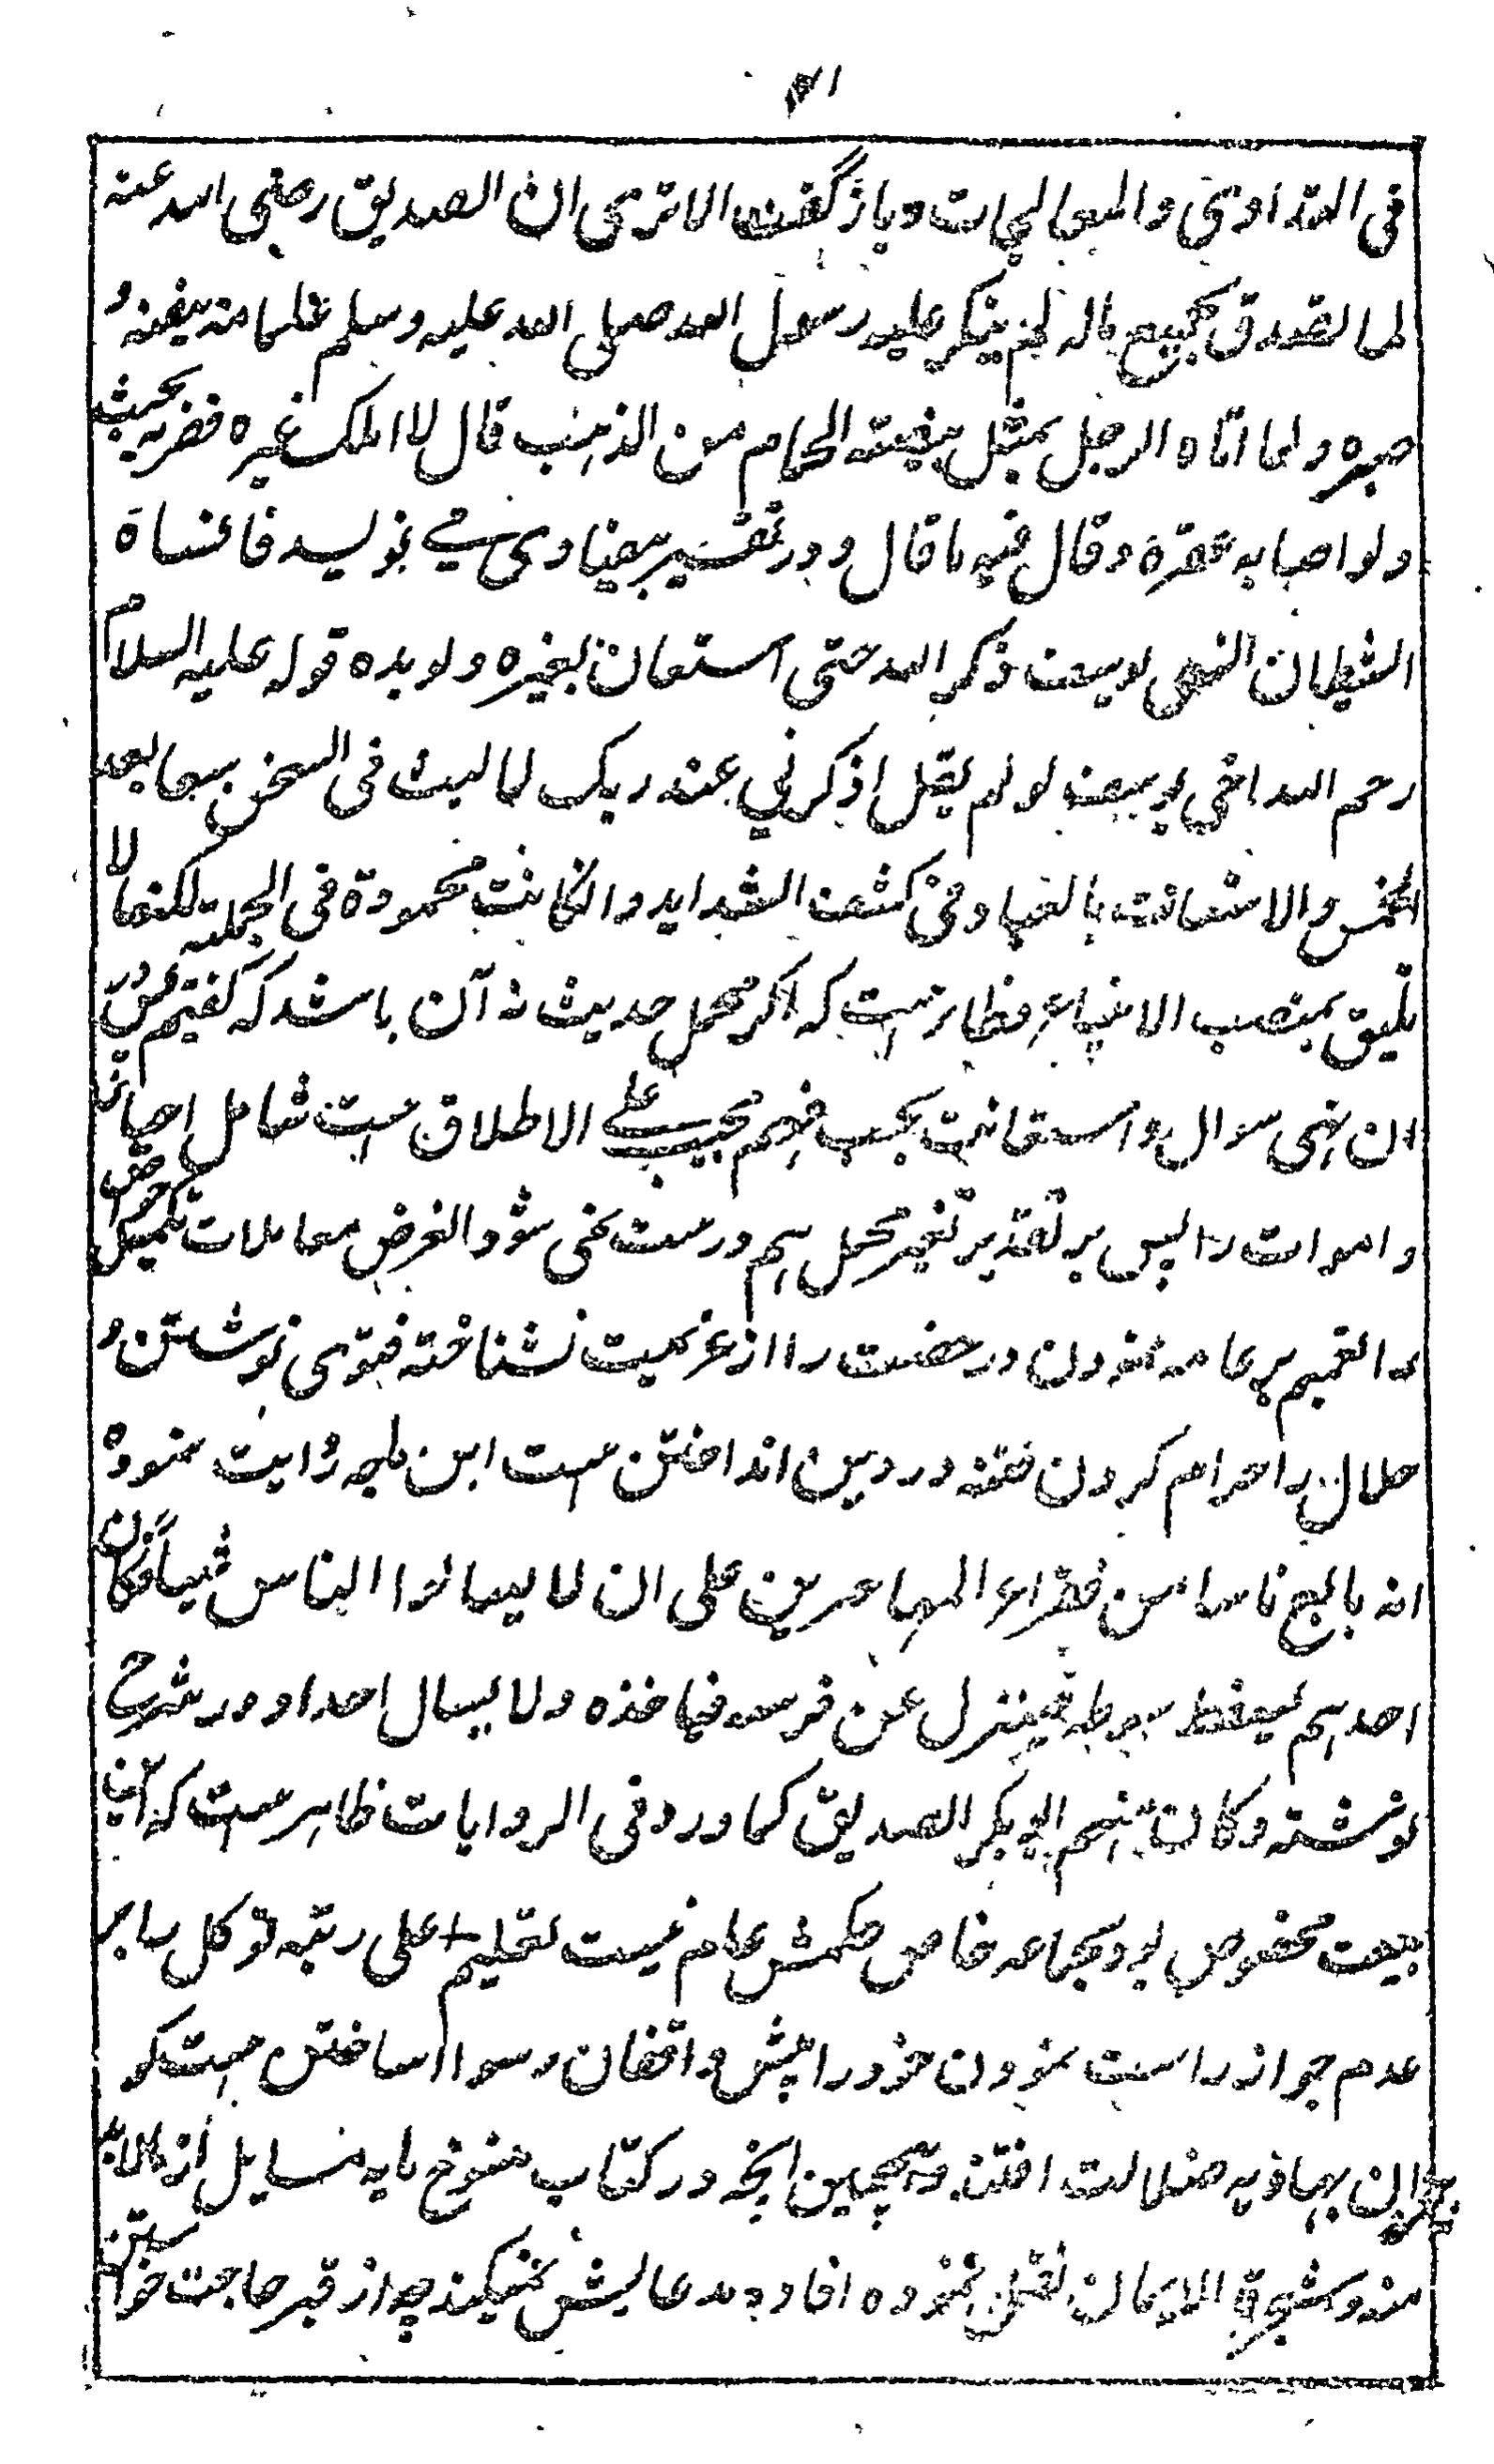 فی التداوی والمعالجات وبازگفت الا تری ان الصدیق رضی الله عنه
لما تصدق بجمیع ماله لم ینکر علیه رسول الله صلی الله علیه وسلم علما منه بیقینه و
صبره ولما اتاه الرجل بمثل بیضة الحمام من الذهب قال لا املک غیره فضربه بحیث
ولو اصابه عقره وقال فیه ما قال ودر تفسیر بیضاوی می نویسد فانساه
الشیطان انسی یوسف ذکر الله حتی استعان بغیره ویویده قوله علیه السلام
رحم الله اخی یوسف لو لم یقل اذکرنی عند ربک لما لبث فی السجن سبعا بعد
الخمس والاستعانة بالعباد فی کشف الشداید وانکانت محمودة فی الجملة لکنها لا
تلیق بمنصب الانبیاء ظاهرست که اگر محمل حدیث نه آن باشد که گفتیم پس در
ان نهی سوال و استعانت بحسب فهم مجیب علی الاطلاق ست شامل احیا
و اموات را پس بر تقدیر تعمیم محمل هم درست نمی شود الغرض معاملات تکمیل خواص
را تعمیم بر عامه نمودن و رخصت را از عزیمت نشناخته فتوی نوشتن و
حلال را حرام کردن فتنه در دین انداختن ست ابن ماجه روایت نموده
انه بایع ناسا من فقراء المهاجرین علی ان لا یسالوا الناس شیاً فکان
احدهم یسقط سوطه فینزل عن فرسه فیاخذه ولا یسال احدا و در شرح
نوشته وکان منهم ابو بکر الصدیق کما ورد فی الروایات ظاهرست که این
بیعت مخصوص بود بجماعه خاص حکمش عام نیست تعلیم اعلی رتبه توکل را بر
عدم جواز راست نمودن خود را پیش واقفان رسوا ساختن ست کو
بهاویه ضلالت افتند وهمچنین انچه در کتاب مایه مسایل از
منه وشجرة الایمان نقل نموده افاده مدعایش نمیکند چه از قبر حاجت خواستن